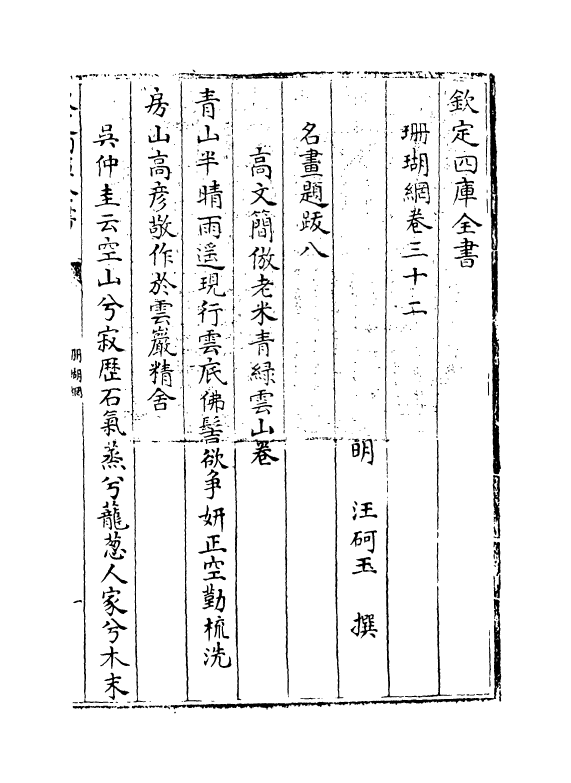 欽定四庫全書
珊瑚網卷三十二
明 汪砢玉 撰
名畫題跋八
高文簡倣老米青綠雲山卷
青山半晴雨遥現行雲底佛髻欲争妍正空勤梳洗
房山高彦敬作於雲巖精舍
吳仲圭云空山兮寂歴石氣蒸兮龍葱人家兮木末
珊瑚網
一